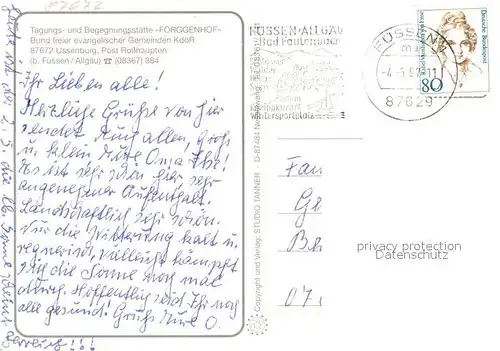 87672
Tagungs- und Begegnungsstätte »FORGGENHOF«
Bund freier evangelischer Gemeinden KdöR
87672 Ussenburg, Post Roßhaupten
(b. Füssen / Allgäu) ☎ (08367) 884
Ihr Lieben alle!
Herzliche Grüße von hier
sendet Euch allen, Groß
u. klein Eure Oma Ilse!
Es ist sehr schön hier sehr
angenehmer Aufenthalt.
Landschaftlich sehr schön.
Nur die Witterung kalt u.
regnerisch, vielleicht kämpft
sich die Sonne noch mal
durch. Hoffentlich seid Ihr noch
alle gesund. Gruß Eure O.
Heute ist der 2.5. die lb. Sonne scheint
herrlich!!!
Copyright und Verlag: STUDIO TANNER D-87484
FÜSSEN-ALLGÄU
Bad Faulenbach
Wintersportplatz
FÜSSEN
-4.-5.97-11
87629
Deutsche Bundespost
80
Fam
Ge
07.
privacy protection
Datenschutz